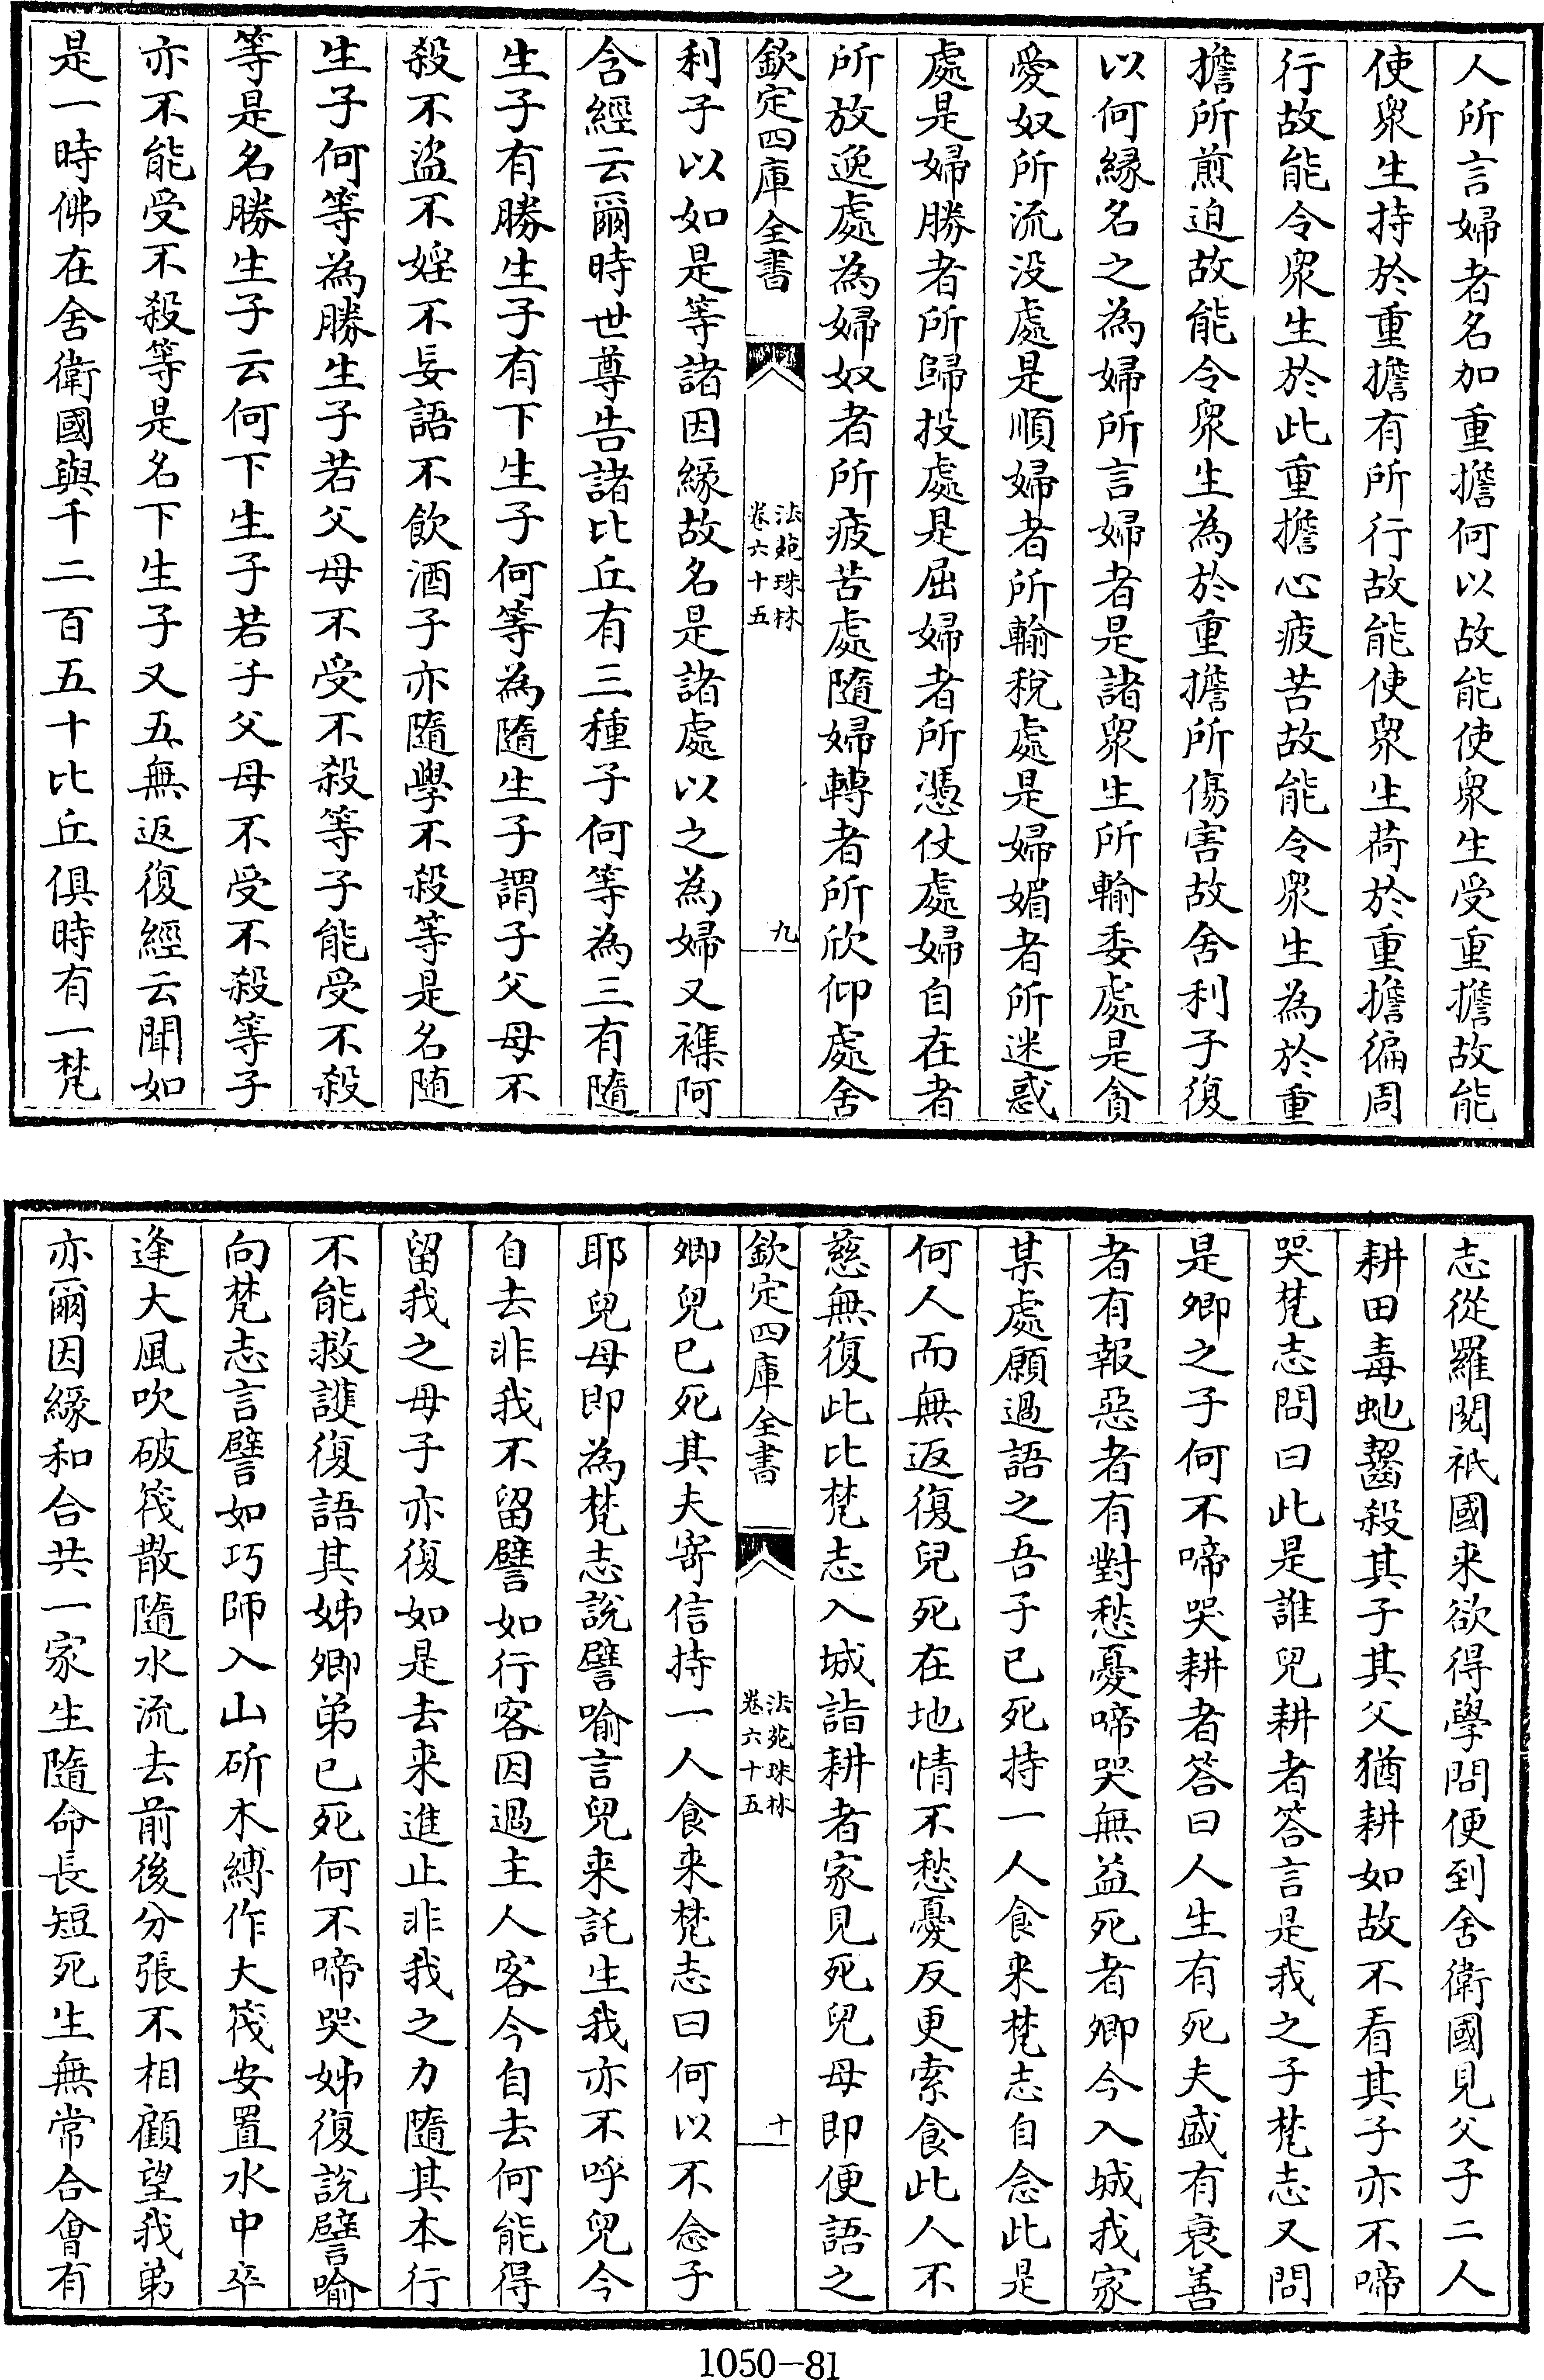 人所言婦者名加重擔何以故能使衆生受重擔故能
使衆生持於重擔有所行故能使衆生荷於重擔徧周
行故能令衆生於此重擔心疲苦故能令衆生為於重
擔所煎迫故能令衆生為於重擔所傷害故舍利子復
以何縁名之為婦所言婦者是諸衆生所輸委處是貪
愛奴所流没處是順婦者所輸稅處是婦媚者所迷惑
處是婦勝者所歸投處是屈婦者所憑仗處婦自在者
所放逸處為婦奴者所疲苦處隨婦轉者所欣仰處舍
欽定四庫全書
法苑珠林
卷六十五
九
利子以如是等諸因緣故名是諸處以之為婦又襍阿
含經云爾時世尊告諸比丘有三種子何等為三有隨
生子有勝生子有下生子何等為隨生子謂子父母不
殺不盜不婬不妄語不飲酒子亦隨學不殺等是名随
生子何等為勝生子若父母不受不殺等子能受不殺
等是名勝生子云何下生子若子父母不受不殺等子
亦不能受不殺等是名下生子又五無返復經云聞如
是一時佛在舍衛國與千二百五十比丘俱時有一梵
志從羅閱祇國来欲得學問便到舍衛國見父子二人
耕田毒虵齧殺其子其父猶耕如故不看其子亦不啼
哭梵志問曰此是誰兒耕者答言是我之子梵志又問
是卿之子何不啼哭耕者答曰人生有死夫盛有衰善
者有報惡者有對愁憂啼哭無益死者卿今入城我家
某處願過語之吾子已死持一人食来梵志自念此是
何人而無返復兒死在地情不愁憂反更索食此人不
慈無復此比梵志入城詣耕者家見死兒母即便語之
欽定四庫全書
法苑珠林
卷六十五
十
卿兒已死其夫寄信持一人食来梵志曰何以不念子
耶兒母即為梵志說譬喻言兒来託生我亦不呼兒今
自去非我不留譬如行客因過主人客今自去何能得
留我之母子亦復如是去来進止非我之力隨其本行
不能救護復語其姊卿弟已死何不啼哭姊復說譬喻
向梵志言譬如巧師入山斫木縛作大筏安置水中卒
逢大風吹破筏散隨水流去前後分張不相顧望我弟
亦爾因緣和合共一家生隨命長短死生無常合會有
1050-81